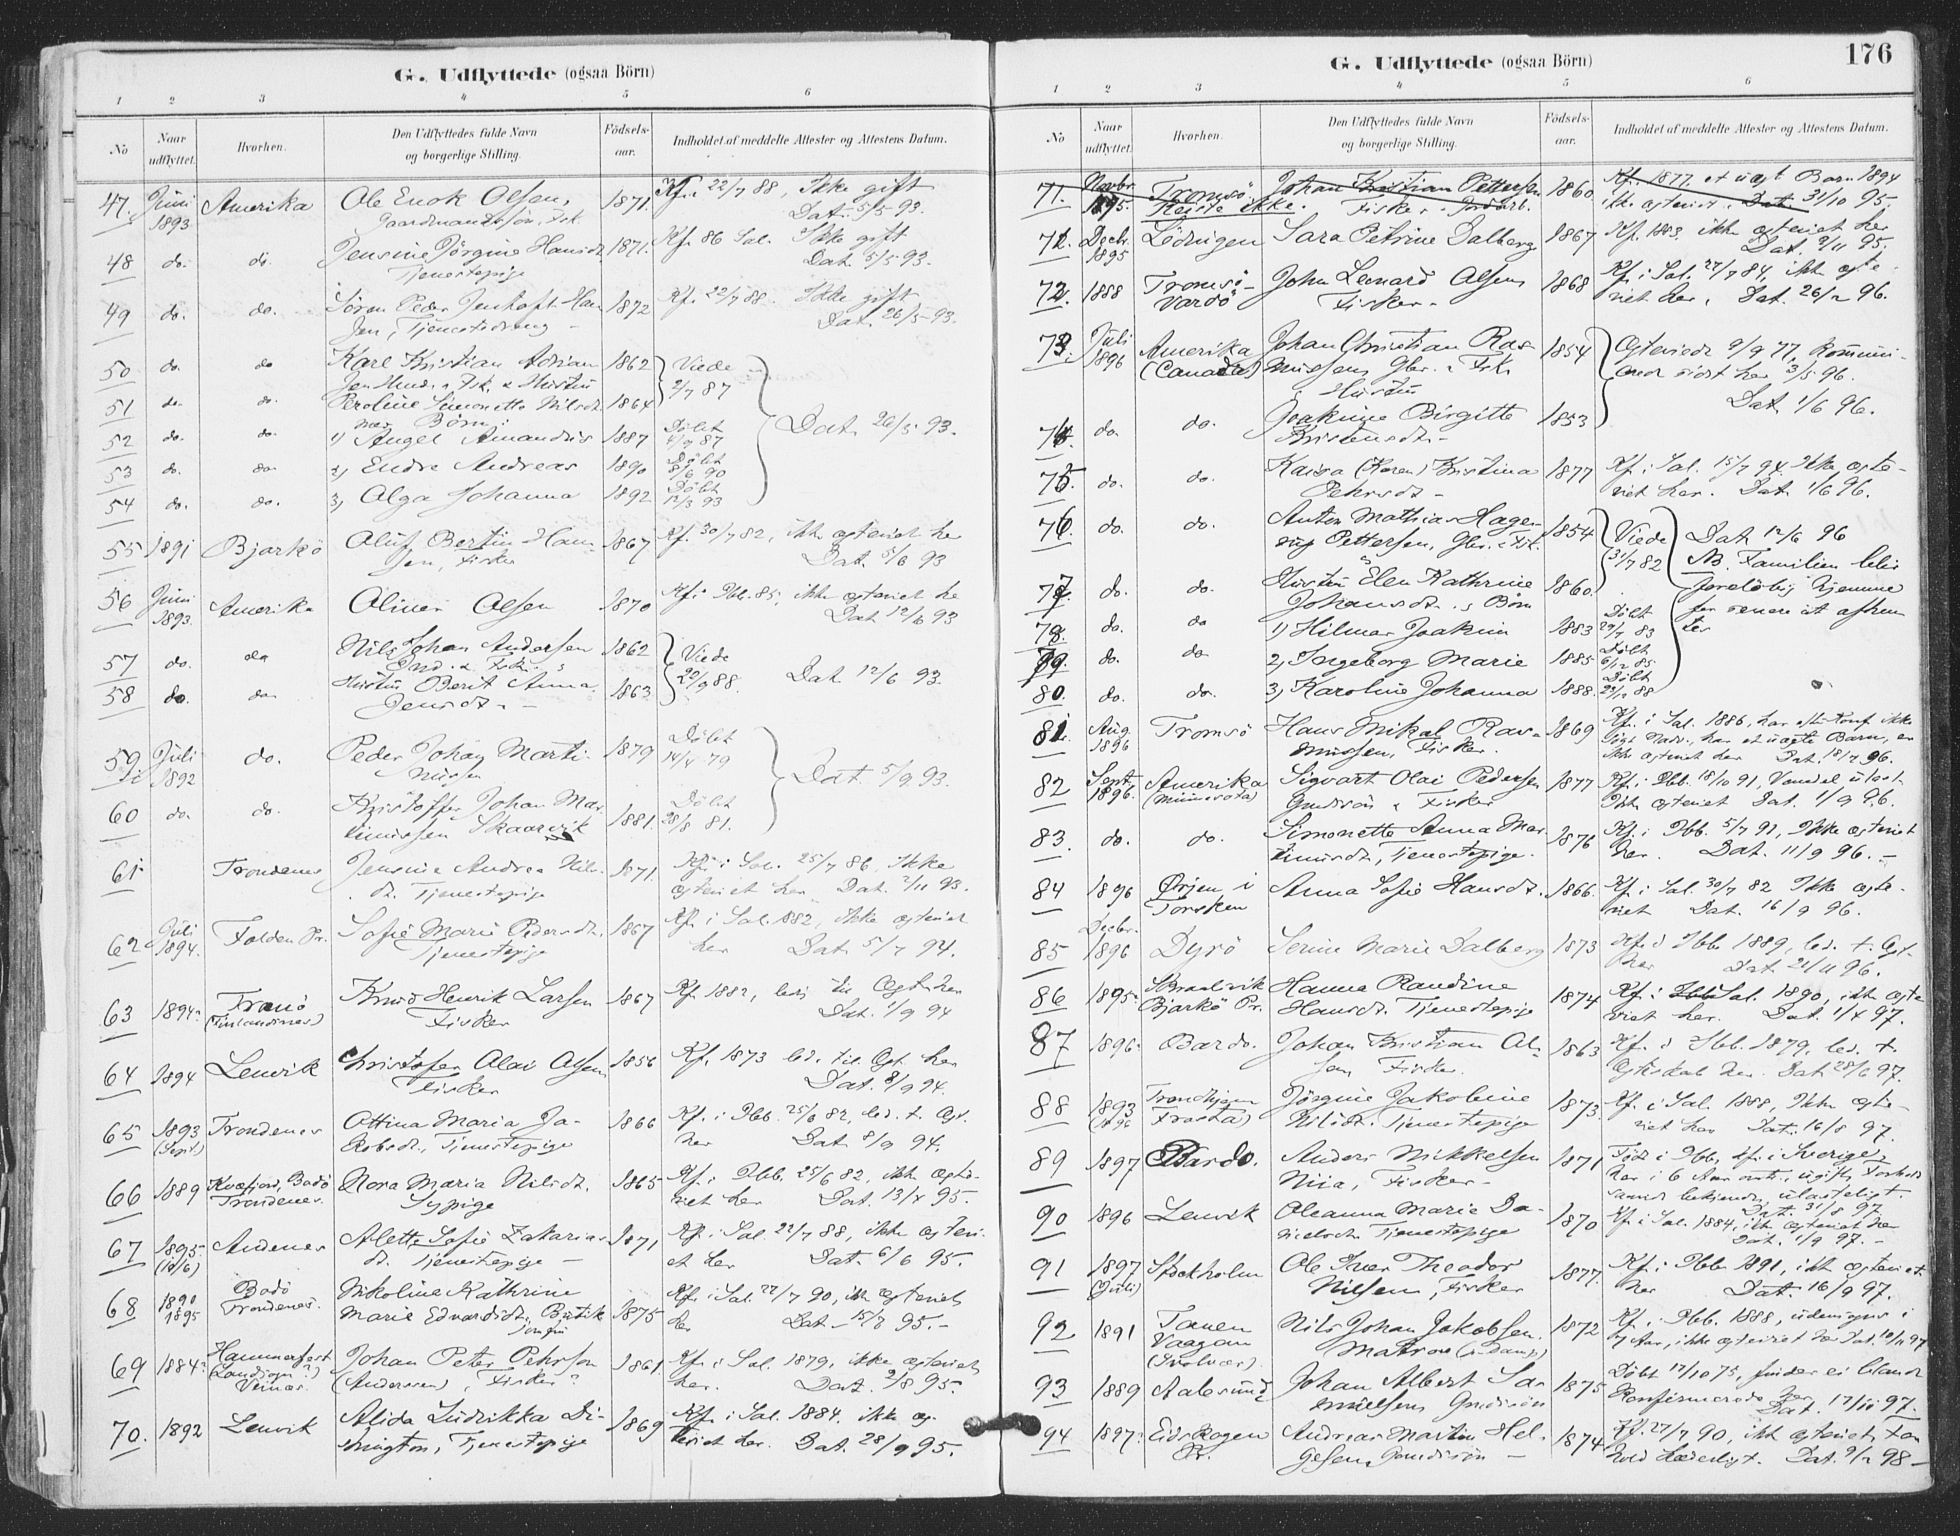 G. Udflyttede (ogsaa Börn)
1 2 3 4 5 6
No
Naar udflyttet.
Hvorhen.
Den Udflyttedes fulde Navn og borgerlige Stilling.
Födsels-aar.
Indholdet af meddelte Attester og Attestens Datum.
47. Juni 1893 Amerika Ole Enok Olsen, 1871. Kf. 22/7 88, Ikke gift
Gaardmandssön, Fsk. Dat. 5/5 93.
48 do. do. Jensine Jörgine Hansdt. 1871. Kf. 86 Sal. Ikke gift
Tjenestepige Dat. 5/5 93.
49 do. do. Sören Peder Jenhoft Han- 1872 Kf. 22/7 88. Ikke gift
sen, Tjenestedreng - Dat. 26/5 93.
50 do. do Karl Kristian Adrian 1862 Viede
51 do. do. Peroline Simonette Nilsdt. 1864 2/7 87
Börn: Dat. 26/5 93.
52 do. do. 1) Angel Amandus 1887 Döbt 4/9 87
53 do. do. 2) Endre Andreas 1890 Döbt 8/6 90
54 do. do. 3) Alga Johanna 1892 Döbt 12/3 93
55 1891 Bjarkö Oluf Bertin Han- 1867 Kf. 30/7 82, ikke ægteviet he
sen, Fisker Dat. 5/6 93
56 Juni 1893. Amerika Oliner Olsen 1870 Kf. i Ibb. 85, ikke ægteviet he
Dat 12/6 93
57 do. do Nils Johan Andersen 1862 Viede
Ind. & Fsk. s 20/9 88. Dat 12/6 93.
58 do do Hustru Berit Anna 1863
Jensdt. -
59 Juli 1892 do. Peder Johan Marti- 1879 Döbt 14/4 79
nussen Dat. 5/9 93.
60 do. do. Kristoffer Johan Mar- 1881. Döbt 28/8 81.
tinussen Skaarvik
61. Trondenes Jensine Andrea Nils- 1871. Kf. i Sal. 25/7 86. Ikke
dt. Tjenestepige ægteviet her Dat. 2/11 93.
62 Juli 1894. Folden Pr. Sofie Marie Pedersdt. 1867 Kf. i Sal. 1882, ikke ægteviet
Tjenestepige her Dat 5/7 94.
63 1894. Tranö Knud Henrik Larsen 1867 Kf. 1882, led. til Ægt. her
(Finlandsnes) Fisker Dat. 1/9 94
64 1894 Lenvik Christofer Olai Olsen 1856 Kf. 1873 led. til Ægt. her
Fisker Dat. 8/9 94.
65 1893 (Sept) Trondenes Ottina Maria Ja- 1866 Kf. i Ibb. 25/6 82, led. t. Ægt.
kobsdt., Tjenestepige her Dat 8/9 94.
66 1889 Kvæfjord, Bodö Nora Maria Nilsdt. 1865 Kf. i Ibb. 25/6 82, ikke ægte-
Trondenes. Sypige viet her Dat. 13/4 95.
67 1895. (10/6) Andenes Alette Sofie Zakarias- 1871 Kf. i Sal. 22/7 88, ikke ægtevi-
dt. Tjenestepige - et her Dat. 6/6 95.
68 1890 1895 Bodö Nikoline Kathrine Kf. i Sal. 27/7 90, ikke ægteviet
Trondenes. Marie Edvardsdt. Butik- 1875 her Dat. 15/8 95.-
jomfru
69 1884? Hammerfest Johan Peter Pehrson 1861. Kf. i Sal. 1879, ikke ægteviet
(Anderssen), Fisker? her. Dat. 2/8 95.
70. 1892 Lenvik Alida Ludrikka Di- 1869 Kf. i Sal. 1884. ikke æg-
mington, Tjenestepige teviet her. Dat. 28/9 95.
G. Udflyttede (ogsaa Börn) 176
1 2 3 4 5 6
No
Naar udflyttet.
Hvorhen.
Den Udflyttedes fulde Navn og borgerlige Stilling.
Födsels-aar.
Indholdet af meddelte Attester og Attestens Datum.
71. Novbr. 1895. Tromsö. Johan Kristian Pettersen 1860. Kf. 1877, et uægt Barn 1894
Reiste ikke. Fisker, Jordarb. ikke ægteviet. Dat. 31/10 95.
71. Decbr. 1895 Lödingen Sara Petrine Dalberg 1867 Kf. 1883, ikke ægteviet her
Dat. 9/11 95.
72. 1888 Tromsö- John Leonard Olsen, 1868 Kf. i Sal. 27/7 84, ikke ægte-
Vardö Fisker. viet her. Dat. 26/2 96.
73. Juli 1896 Amerika Johan Christian Ras- 1854 Ægteviede 9/9 77, kommuni-
(Canada) mussen, Gbr. & Fsk. ceret sidst her 3/5 96.
Hustru Dat. 1/6 96.
74. do. do. Joakime Birgitte 1853
Kristensdt. -
75. do. do. Kaisa (Karen) Kristina 1877 Kf. i Sal. 15/7 94. Ikke ægte-
Pehrsdt - viet her. Dat. 1/6 96.
76. do do. Anton Mathias Hage- 1854 Viede Dat 12/6 96
rup Pettersen, Gbr. & Fsk. 31/7 82 NB. Familien blev
77. do. do. Hustru Elen Kathrine 1860. foreløbig hjemme
Johansdt. s Börn for senere at afhen-
78. do. do 1) Hilmar Joakim 1883 Döbt 29/7 83 tes
79. do. do. 2) Ingeborg Marie 1885 Döbt 6/12 85
80. do. do. 3) Karoline Johanna 1888. Döbt 23/12 88
81. Aug. 1896 Tromsö Hans Mikal Ras- 1869 Kf. i Sal. 1886, har eft. Konf. ikke
mussen, Fisker. har et uægte Barn, er
ikke ægteviet her Dat. 18/7 96.
82 Sept. 1896. Amerika Sigvart Olai Pedersen 1877 Kf. i Ibb. 18/10 91, Vandel ulast.
(Minnesota) Gmdssön & Fisker Ikke ægteviet Dat. 1/9 96.
83. do. do. Simonette Anna Mar- 1876 Kf. i Ibb. 5/7 91, Ikke ægteviet
tinusdt., Tjenestepige. her. Dat. 11/9 96. -
84 1896 Örjen i Anna Sofie Hansdt. 1866. Kf. i Sal. 30/7 82 Ikke ægte-
Torsken viet Dat. 16/9 96.
85 Decbr. 1896 Dyrö Serine Marie Dalberg 1873 Kf. i Ibb 1889, led. t. Ægt.
her Dat. 21/11 96.
86 1895. Hanna Randine 1874 Kf. i Sal. 1890, ikke ægte
Bjarkö Pr. Hansdt. Tjenestepige viet her. Dat. 1/4 97.
87 1896. Bardo. Johan Kristian Ol- 1863 Kf. i Ibb. 1879, led. t.
sen Fisker. Ægteskab her. Dat 28/6 97.
88 1893 Trondhjem Jörgine Jakobine 1873. Kf. i Sal. 1888, Ikke ægte-
(Frosta) Nilsdt. Tjenestepige viet her Dat. 16/8 97.
89 1897 Bardo. Anders Mikkelsen 1871 Föd i Ibb., kf. i Sverige,
Niia, Fisker - her i 6 Aar, ugift, Forhold
ulasteligt. Dat. 31/8 97.
90 1896 Lenvik Oleanna Marie Da- 1870 Kf. i Sal. 1884, ikke ægteviet her
nielsdt. Tjenestepige Dat. 1/9 97. -
91 1897 (Juli) Stockholm Ole Iver Theodor 1877. Kf. i Ibb. 1891, ikke ægteviet
Nilsen, Fisker her Dat. 16/9 97.
92 1891 Tanen Nils Johan Jakobsen 1872 Kf. i Ibb. 1888, udensogns i
Vaagan Matros 7 Aar, ikke ægteviet her Dat. 10/11 97
(Svolvær).
93 1889 Aalesund Johan Albert Sa- 1875 Döbt 17/10 75, findes ei blandt
muelsen Gmdssön Konfirmerede her Dat. 17/11 97.
94 1897. Eidskogen Andreas Martin Hel- 1874 Kf. 27/7 90, ikke ægteviet, For
Pr. gesen, Gmdssön - hold hæderligt. Dat. 9/2 98 -